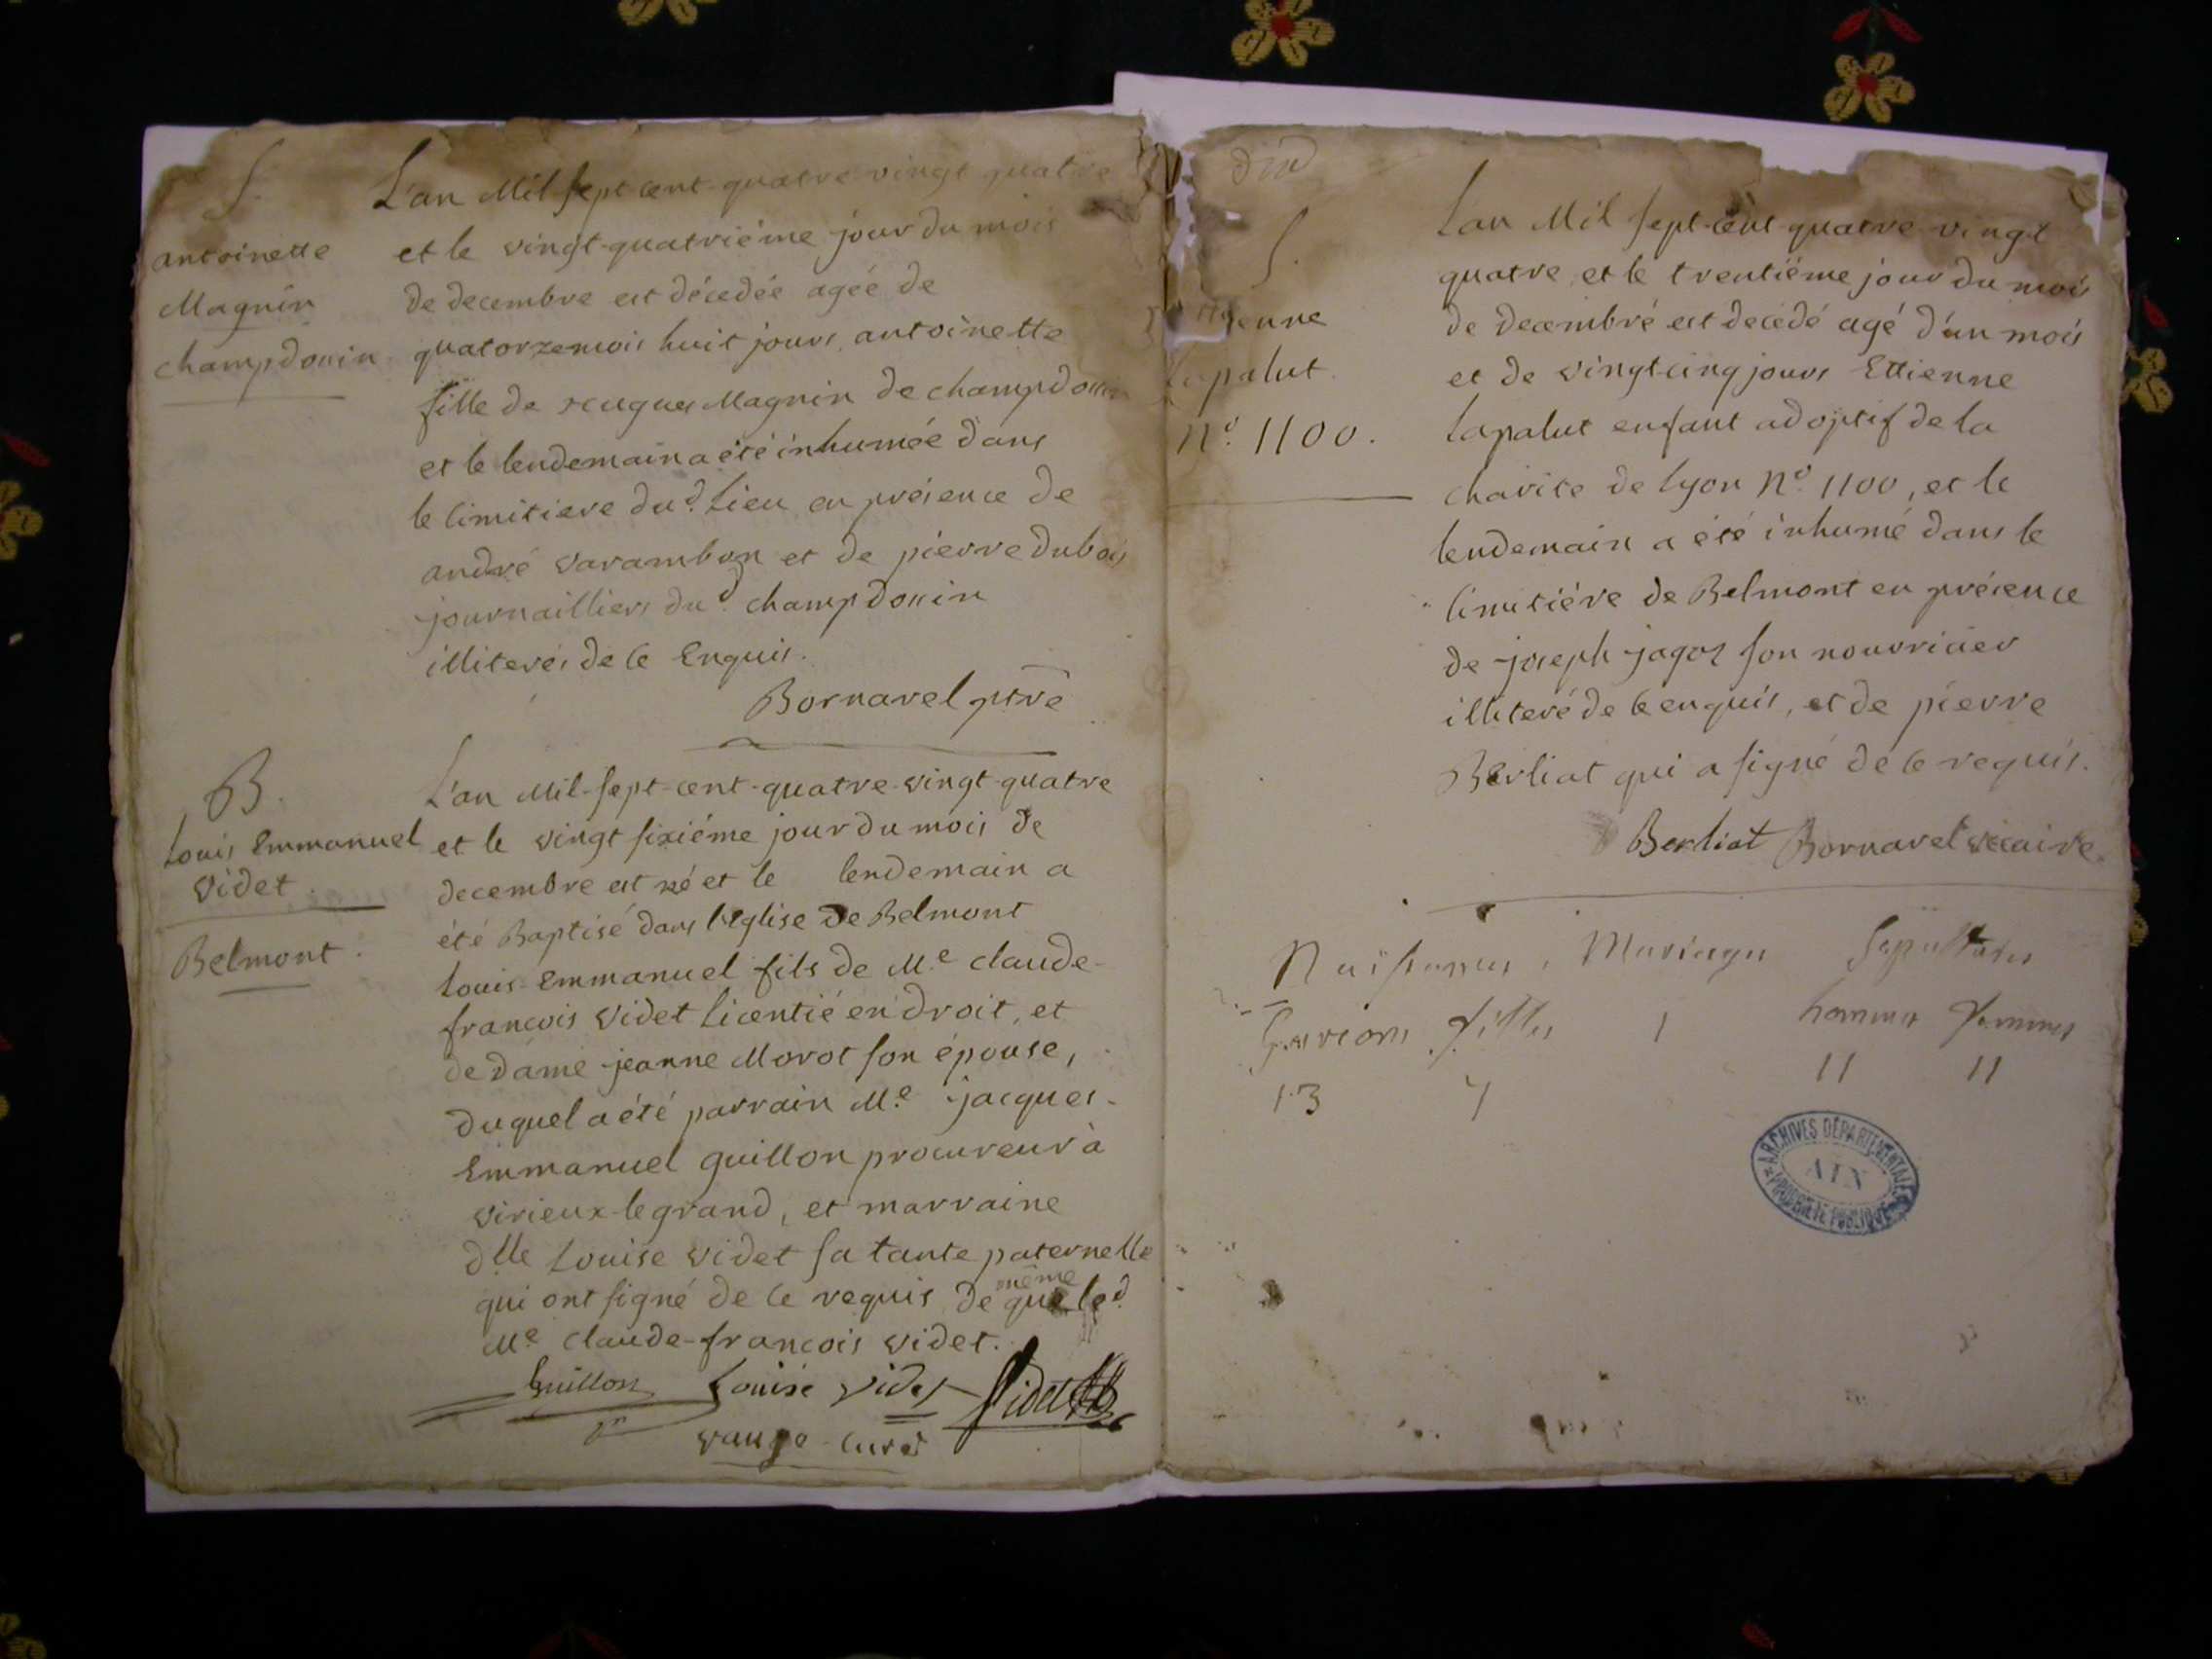 S.
antoinette
Magnin
champdossin
L'an Mil sept cent quatre vingt quatre
et le vingt-quatriéme jour du mois
de decembre est décedée agée de
quatorze mois huit jours, antoinette
fille de Magnin de champdossin
et le lendemain a été inhumée dans
le cimitiere dud. Lieu en présence de
andré varambon et de pierre dubois
journailliers dud. champdossin
illiterés de ce Enquis.
Bornarel ptre
B.
Louis Emmanuel
Videt.
Belmont.
L'an Mil-sept-cent-quatre-vingt-quatre
et le vingt sixiéme jour du mois de
decembre est né et le lendemain a
été Baptisé dans l'Eglise de Belmont
Louis-Emmanuel fils de Me. claude-
francois Videt Licentié en droit, et
de dame jeanne Morot son épouse,
duquel a été parrain Me. jacques-
Emmanuel guillon procureur à
virieux-le grand, et marraine
dlle Louise videt sa tante paternelle
même
qui ont signé de ce requis de que led.
Me claude-francois videt.
Guillon Louise videt Videt
vauge curé
S.
Ettienne
Lapalut.
N° 1100.
L'an Mil sept-cent-quatre-vingt
quatre, et le trentiéme jour du mois
de decembré est decedé agé d'un mois
et de vingt-cinq jours Ettienne
Lapalut enfant adoptif de la
charité de Lyon N° 1100, et le
lendemain a été inhumé dans le
cimitiére de Belmont en présence
de joseph jagoz son nourricier
illiteré de ce enquis, et de pierre
Berliat qui a signé de ce requis.
Berliat Bornarel vicaire.
Naissances, Mariages Sepultures
Garcons filles 1 hommes femmes
13 7 11 11
ARCHIVES DÉPARTEMENTALES
AIN
PROPRIÉTÉ PUBLIQUE